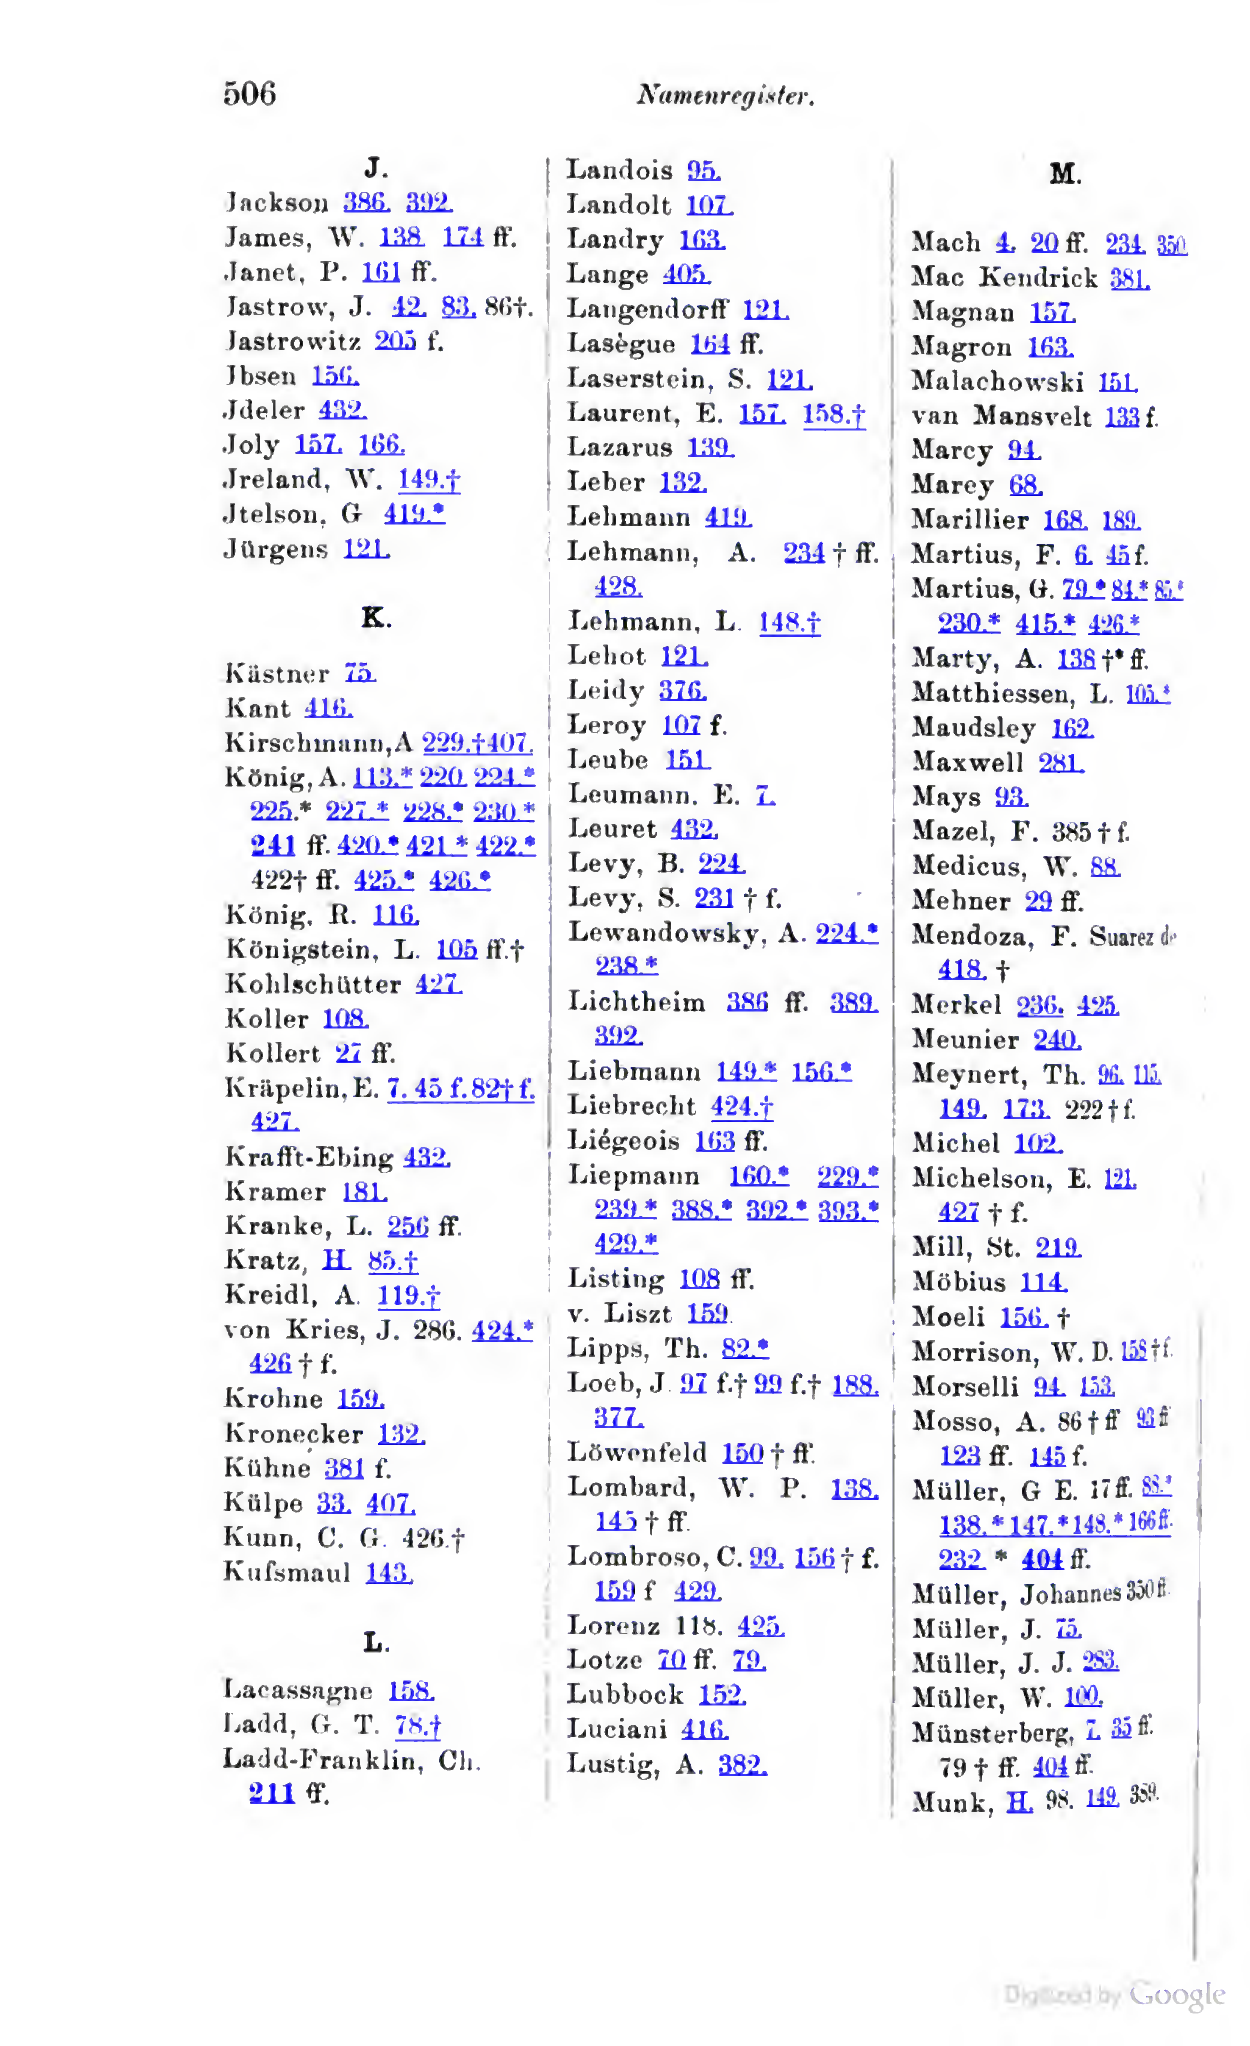 506
Namenregister.
J.
Jackson 386. 392.
James, W. 138. 174 ff.
Janet, P. 161 ff.
Jastrow, J. 42. 83. 86†.
Jastrowitz 205 f.
Jbsen 156.
Jdeler 432.
Joly 157. 166.
Jreland, W. 149.†
Jtelson, G 419.*
Jürgens 121.
K.
Kästner 75.
Kant 416.
Kirschmann, A 229.†407.
König, A. 113.* 220. 224.*
225.* 227.* 228.* 230.*
241 ff. 420.* 421.* 422.*
422† ff. 425.* 426.*
König, R. 116.
Königstein, L. 105 ff.†
Kohlschütter 427.
Koller 108.
Kollert 27 ff.
Kräpelin, E. 7. 45 f. 82† f.
427.
Krafft-Ebing 432.
Kramer 181.
Kranke, L. 256 ff.
Kratz, H. 85.†
Kreidl, A. 119.†
von Kries, J. 286. 424.*
426 † f.
Krohne 159.
Kronecker 132.
Kühne 381 f.
Külpe 33. 407.
Kunn, C. G. 426.†
Kuſsmaul 143.
L.
Lacassagne 158.
Ladd, G. T. 78.†
Ladd-Franklin, Ch.
211 ff.
Landois 95.
Landolt 107.
Landry 163.
Lange 405.
Langendorff 121.
Lasègue 164 ff.
Laserstein, S. 121.
Laurent, E. 157. 158.†
Lazarus 139.
Leber 132.
Lehmann 419.
Lehmann, A. 234 † ff.
428.
Lehmann, L. 148.†
Lehot 121.
Leidy 376.
Leroy 107 f.
Leube 151.
Leumann. E. 7.
Leuret 432.
Levy, B. 224.
Levy, S. 231 † f.
Lewandowsky, A. 224.*
238.*
Lichtheim 386 ff. 389.
392.
Liebmann 149.* 156.*
Liebrecht 424.†
Liégeois 163 ff.
Liepmann 160.* 229.*
239.* 388.* 392.* 393.*
429.*
Listing 108 ff.
v. Liszt 159.
Lipps, Th. 82.*
Loeb, J. 97 f.† 99 f.† 188.
377.
Löwenfeld 150 † ff.
Lombard, W. P. 138.
145 † ff.
Lombroso, C. 99. 156 † f.
159 f 429.
Lorenz 118. 425.
Lotze 70 ff. 79.
Lubbock 152.
Luciani 416.
Lustig, A. 382.
M.
Mach 4. 20 ff. 234. 350.
Mac Kendrick 381.
Magnan 157.
Magron 163.
Malachowski 151.
van Mansvelt 133 f.
Marcy 94.
Marey 68.
Marillier 168. 189.
Martius, F. 6. 45 f.
Martius, G. 79.* 84.* 85.*
230.* 415.* 426.*
Marty, A. 138 †* ff.
Matthiessen, L. 105.*
Maudsley 162.
Maxwell 281.
Mays 93.
Mazel, F. 385 † f.
Medicus, W. 88.
Mehner 29 ff.
Mendoza, F. Suarez de
418. †
Merkel 236. 425.
Meunier 240.
Meynert, Th. 96. 115.
149. 173. 222 † f.
Michel 102.
Michelson, E. 121.
427 † f.
Mill, St. 219.
Möbius 114.
Moeli 156. †
Morrison, W. D. 158 † f.
Morselli 94. 153.
Mosso, A. 86 † ff 93 ff
123 ff. 145 f.
Müller, G E. 17 ff. 88.*
138.* 147.* 148.* 166 ff.
232. * 404 ff.
Müller, Johannes 350 ff.
Müller, J. 75.
Müller, J. J. 283.
Müller, W. 100.
Münsterberg, 7. 35 ff.
79 † ff. 404 ff.
Munk, H. 98. 149. 389.
Digitized by Google